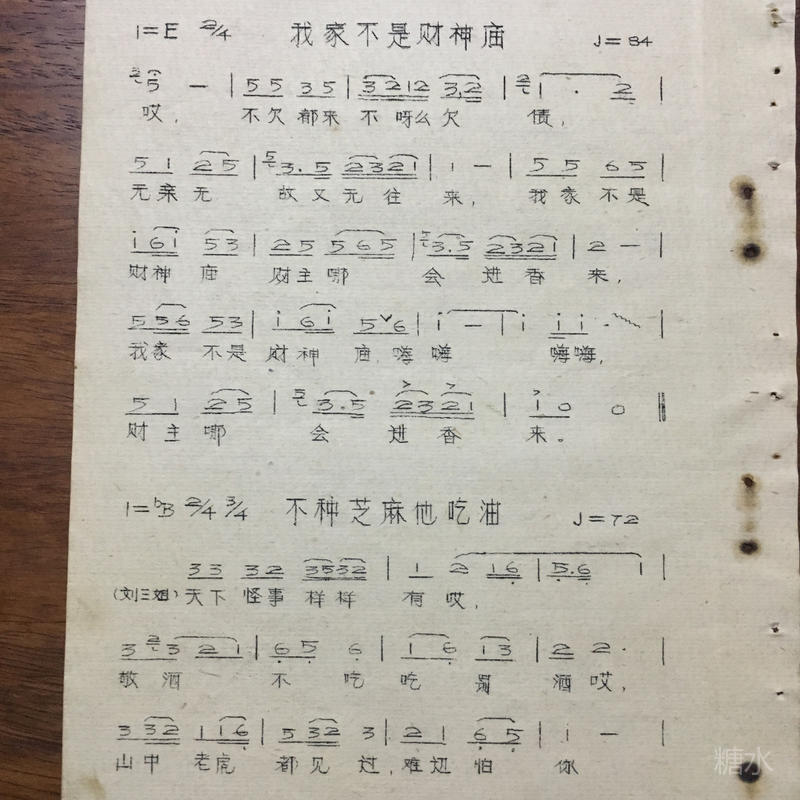 1=E 2/4 我家不是财神庙 ♩=84
2 5 — | 5 5 3 5 | 3 2 1 2 3.2 | 2 1 · 2 |
哎, 不欠都来不呀么欠 债,
5 1 2 5 | 5 3.5 2 3 2 1 | 1 — | 5 5 6 5 |
无亲无 故又无往 来, 我家不是
i 6 i 5 3 | 2 5 5 6 5 | 5 3.5 2 3 2 1 | 2 — |
财神 庙 财主哪 会 进香 来,
5 5 6 5 3 | i 6 i 5 ˅ 6 | i — | i i i · |
我家 不是 财神 庙 嗨嗨 嗨嗨,
5 1 2 5 | 5 3.5 2 3 2 1 | 1 0 0 ‖
财主哪 会 进香 来。
1=♭B 2/4 3/4 不种芝麻他吃油 ♩=72
3 3 3 2 3 5 3 2 | 1 2 1 6 | 5.6 1 |
(刘三姐) 天下 怪事 样样 有 哎,
3 2 3 2 1 | 6 5 6 | 1 6 1 3 | 2 2 · |
敬酒 不 吃 吃 罚 酒哎,
3 3 2 1 1 6 | 5 3 2 3 | 2 1 6 5 | 1 — |
山中 老虎 都见 过, 难边 怕 你
糖水